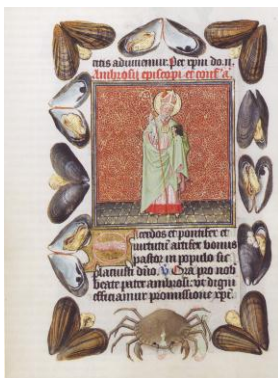 titis adiuuemur. Per xpm do. n.
Ambrosii episcopi et conf. a.
Sacerdos et pontifex et
uirtutum artifex bonus
pastor in populo sic
placuisti dno. V. Ora pro nob
beate pater ambrosi. vt digni
efficiamur promissione xpi.